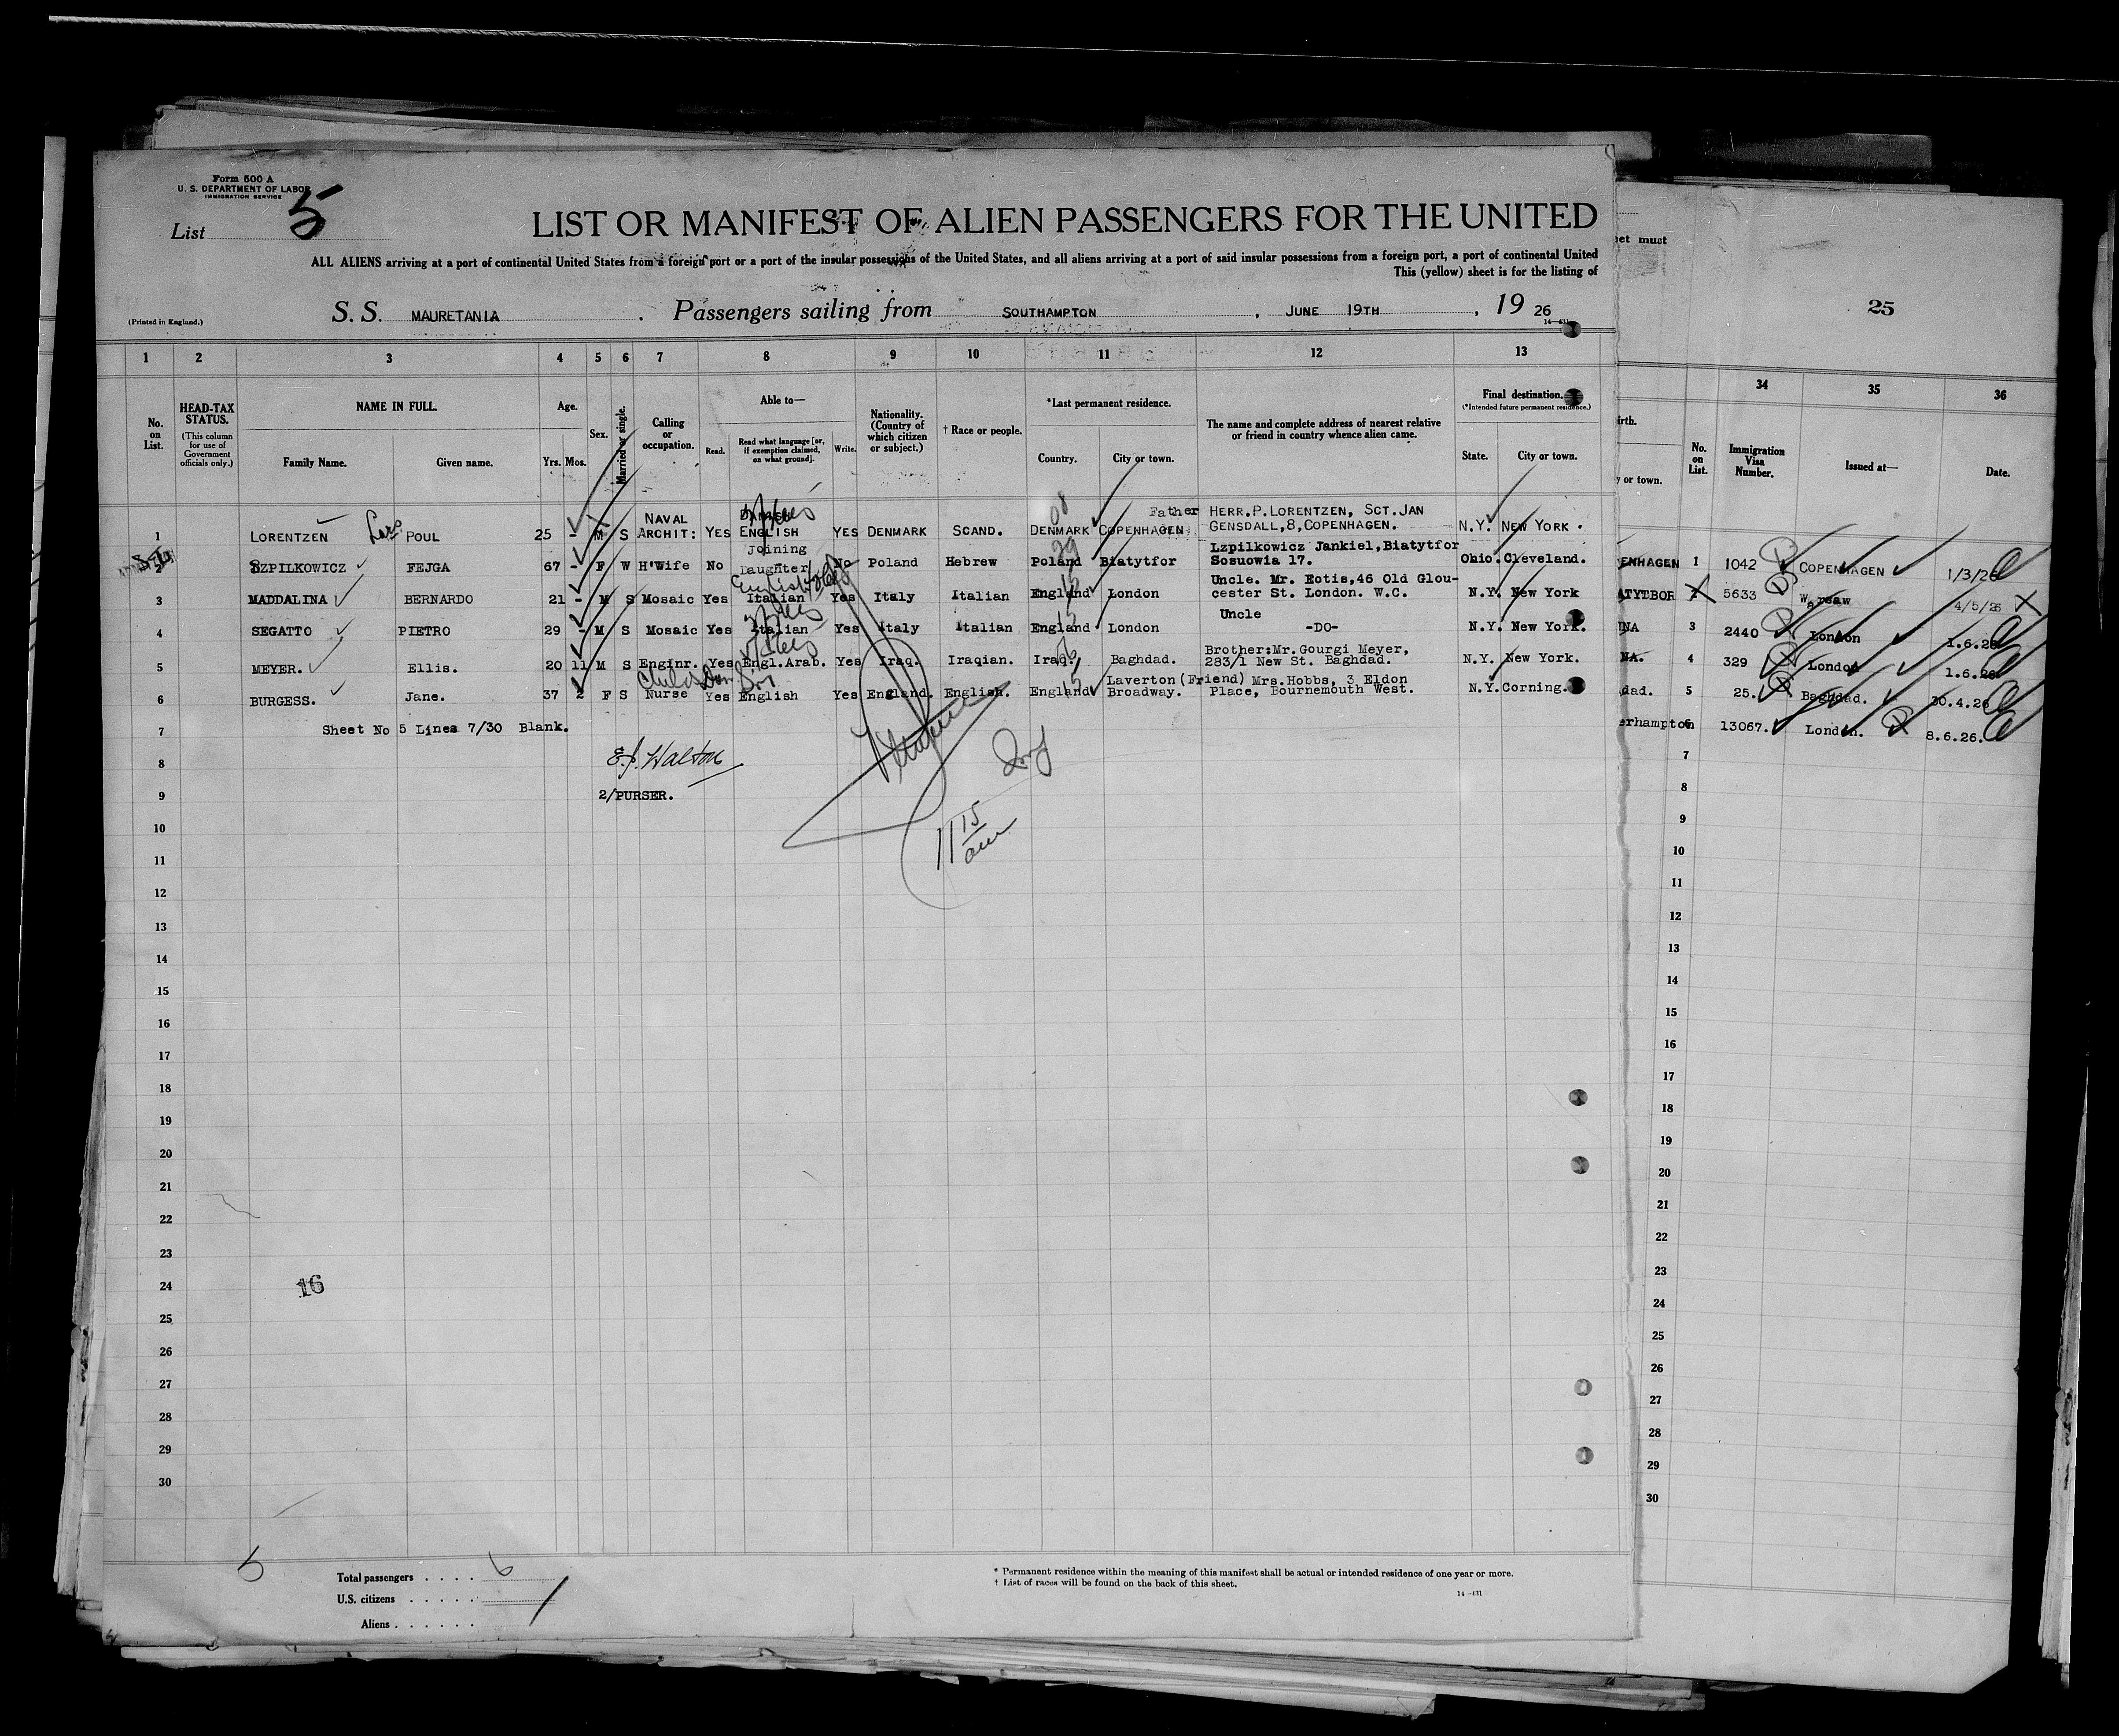 Form 500 A
U. S. DEPARTMENT OF LABOR
IMMIGRATION SERVICE
List 5
LIST OR MANIFEST OF ALIEN PASSENGERS FOR THE UNITED
ALL ALIENS arriving at a port of continental United States from a foreign port or a port of the insular possessions of the United States, and all aliens arriving at a port of said insular possessions from a foreign port, a port of continental United
This (yellow) sheet is for the listing of
eet must
25
(Printed in England.)
S. S. MAURETANIA . Passengers sailing from SOUTHAMPTON , JUNE 19TH , 19 26
14-431
1 2 3 4 5 6 7 8 9 10 11 12 13
34 35 36
No. on List.
HEAD-TAX STATUS. (This column for use of Government officials only.)
NAME IN FULL.
Family Name. Given name.
Age.
Yrs. Mos.
Sex.
Married or single.
Calling or occupation.
Able to—
Read. Read what language [or, if exemption claimed, on what ground]. Write.
Nationality. (Country of which citizen or subject.)
† Race or people.
*Last permanent residence.
Country. City or town.
The name and complete address of nearest relative or friend in country whence alien came.
Final destination.
(*Intended future permanent residence.)
State. City or town.
irth.
y or town.
No. on List.
Immigration Visa Number.
Issued at—
Date.
1 LORENTZEN POUL 25 - M S NAVAL ARCHIT: YES DANISH ENGLISH YES DENMARK SCAND. DENMARK COPENHAGEN Father HERR.P.LORENTZEN, SCT.JAN GENSDALL,8,COPENHAGEN. N.Y. NEW YORK.
2 SZPILKOWICZ FEJGA 67 - F W H'Wife No Joining Daughter No Poland Hebrew Poland Biatytfor Lzpilkowicz Jankiel,Biatytfor Sosuowia 17. Ohio. Cleveland.
3 MADDALINA BERNARDO 21 - M S Mosaic Yes English Italian Yes Italy Italian England London Uncle. Mr. Eotis,46 Old Gloucester St. London. W.C. N.Y. New York
4 SEGATTO PIETRO 29 - M S Mosaic Yes Italian Yes Italy Italian England London Uncle -DO- N.Y. New York.
5 MEYER. Ellis. 20 11 M S Enginr. Yes Engl.Arab. Yes Iraq. Iraqian. Iraq. Baghdad. Brother:Mr.Gourgi Meyer, 283/1 New St. Baghdad. N.Y. New York.
6 BURGESS. Jane. 37 2 F S Nurse Yes English Yes England. English. England Laverton Broadway. (Friend) Mrs.Hobbs, 3 Eldon Place, Bournemouth West. N.Y. Corning.
7 Sheet No 5 Lines 7/30 Blank.
8 E.J. Walton
9 2/PURSER.
11 15 am
10
11
12
13
14
15
16
17
18
19
20
21
22
23
24
16
25
26
27
28
29
30
ENHAGEN 1 1042 COPENHAGEN 1/3/26
ATYTBOR 5633 Warsaw 4/5/26
NA 3 2440 London 1.6.26
NA. 4 329 London 1.6.26
dad. 5 25. Baghdad. 30.4.26
erhampton 6 13067. London. 8.6.26.
7
8
9
10
11
12
13
14
15
16
17
18
19
20
21
22
23
24
25
26
27
28
29
30
Total passengers . . . . 6
U.S. citizens . . . . . .
Aliens . . . . . .
* Permanent residence within the meaning of this manifest shall be actual or intended residence of one year or more.
† List of races will be found on the back of this sheet.
14-431